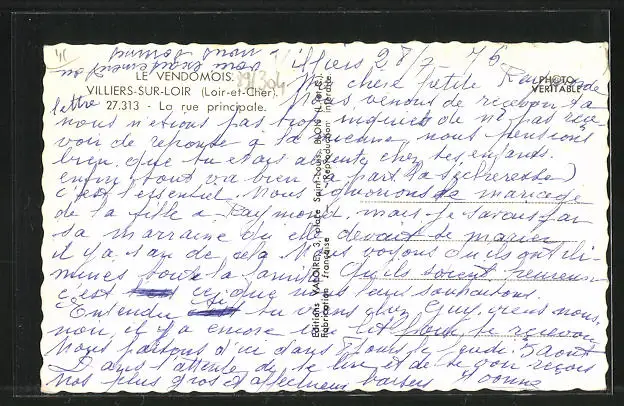 Villiers 28/7 - 76
LE VENDOMOIS.
Ma chère petite Raymonde
VILLIERS-SUR-LOIR (Loir-et-Cher).
27.313 - La rue principale.
PHOTO VERITABLE
39/304
Nous venons de recevoir ta
lettre
nous n'étions pas trop inquiets de ne pas rece-
voir de réponse à la mienne nous pensions
bien que tu étais absente chez tes enfants.
enfin tout va bien (à part la sécheresse)
c'est l'essentiel. Nous ignorions le mariage
de la fille à Raymond, mais je savais par
sa marraine qu'elle devait se marier
il y a 1 an de cela. Nous voyons qu'ils ont
toute la famille. Qu'ils soient heureux
c'est ce que nous leur souhaitons.
Entendu si tu viens chez Guy, viens nous
non, il y a encore un lit pour te recevoir
Nous partons d'ici dans jours le jeudi 5 août
Dans l'attente de te lire et de te voir reçois
nos plus gros et affectueux baisers Yvonne
Editions VALOIRE, 3, place Saint-Louis, BLOIS (L.-et-C.)
Fabrication française - Reproduction interdite